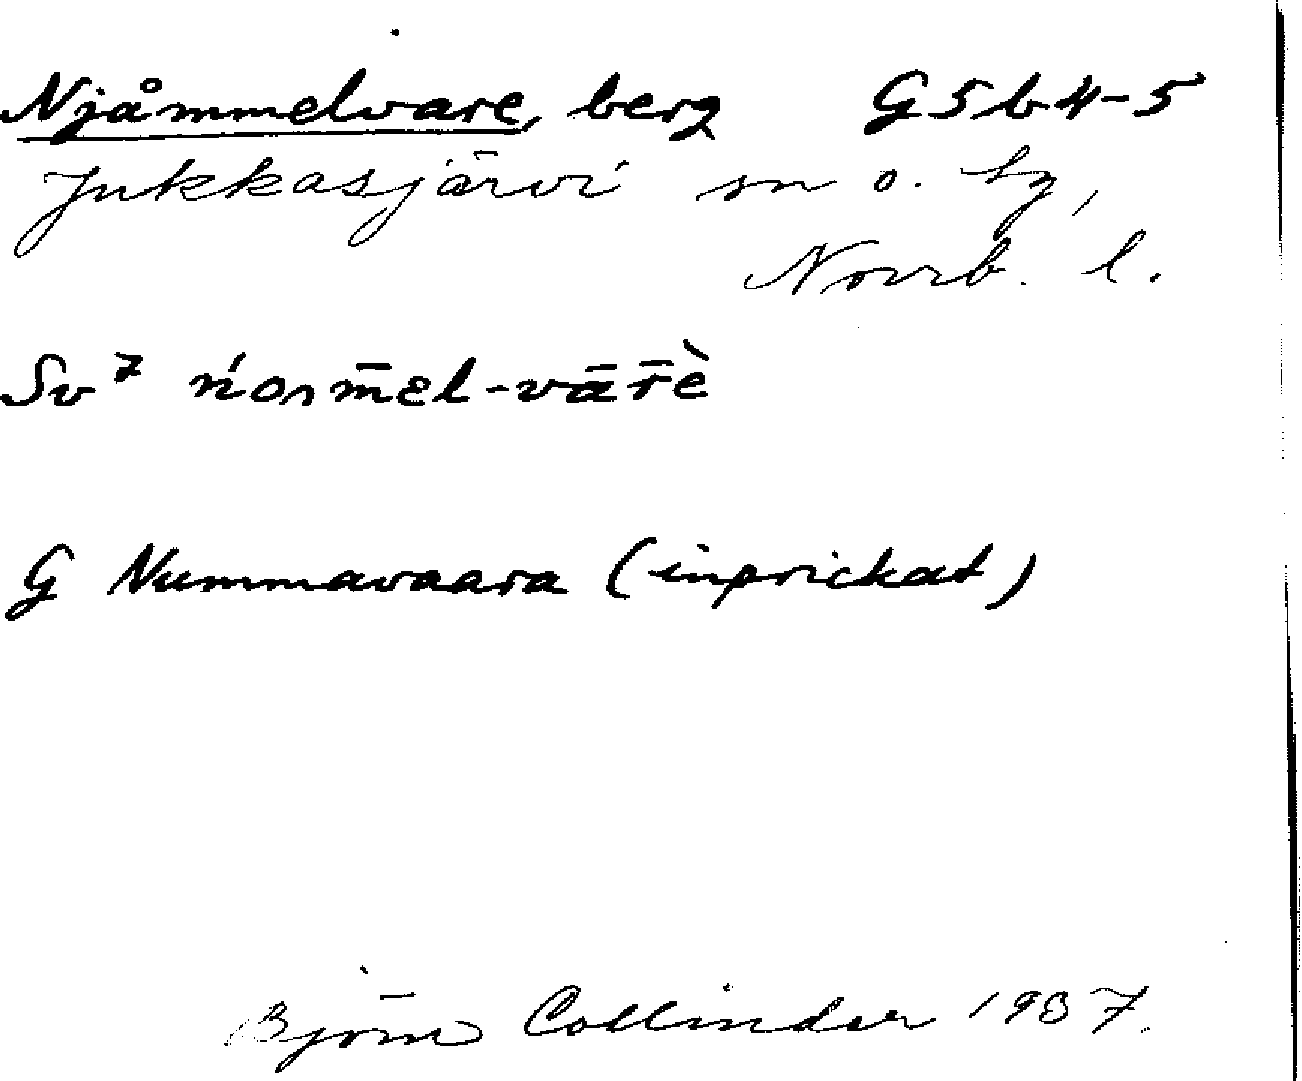 Njåmmelvare, berg G5b4-5
Jukkasjärvi sn o. tg,
Norrb. l.
Sv⁷
G Nummavaara (inprickat)
Björn Collinder 1937.